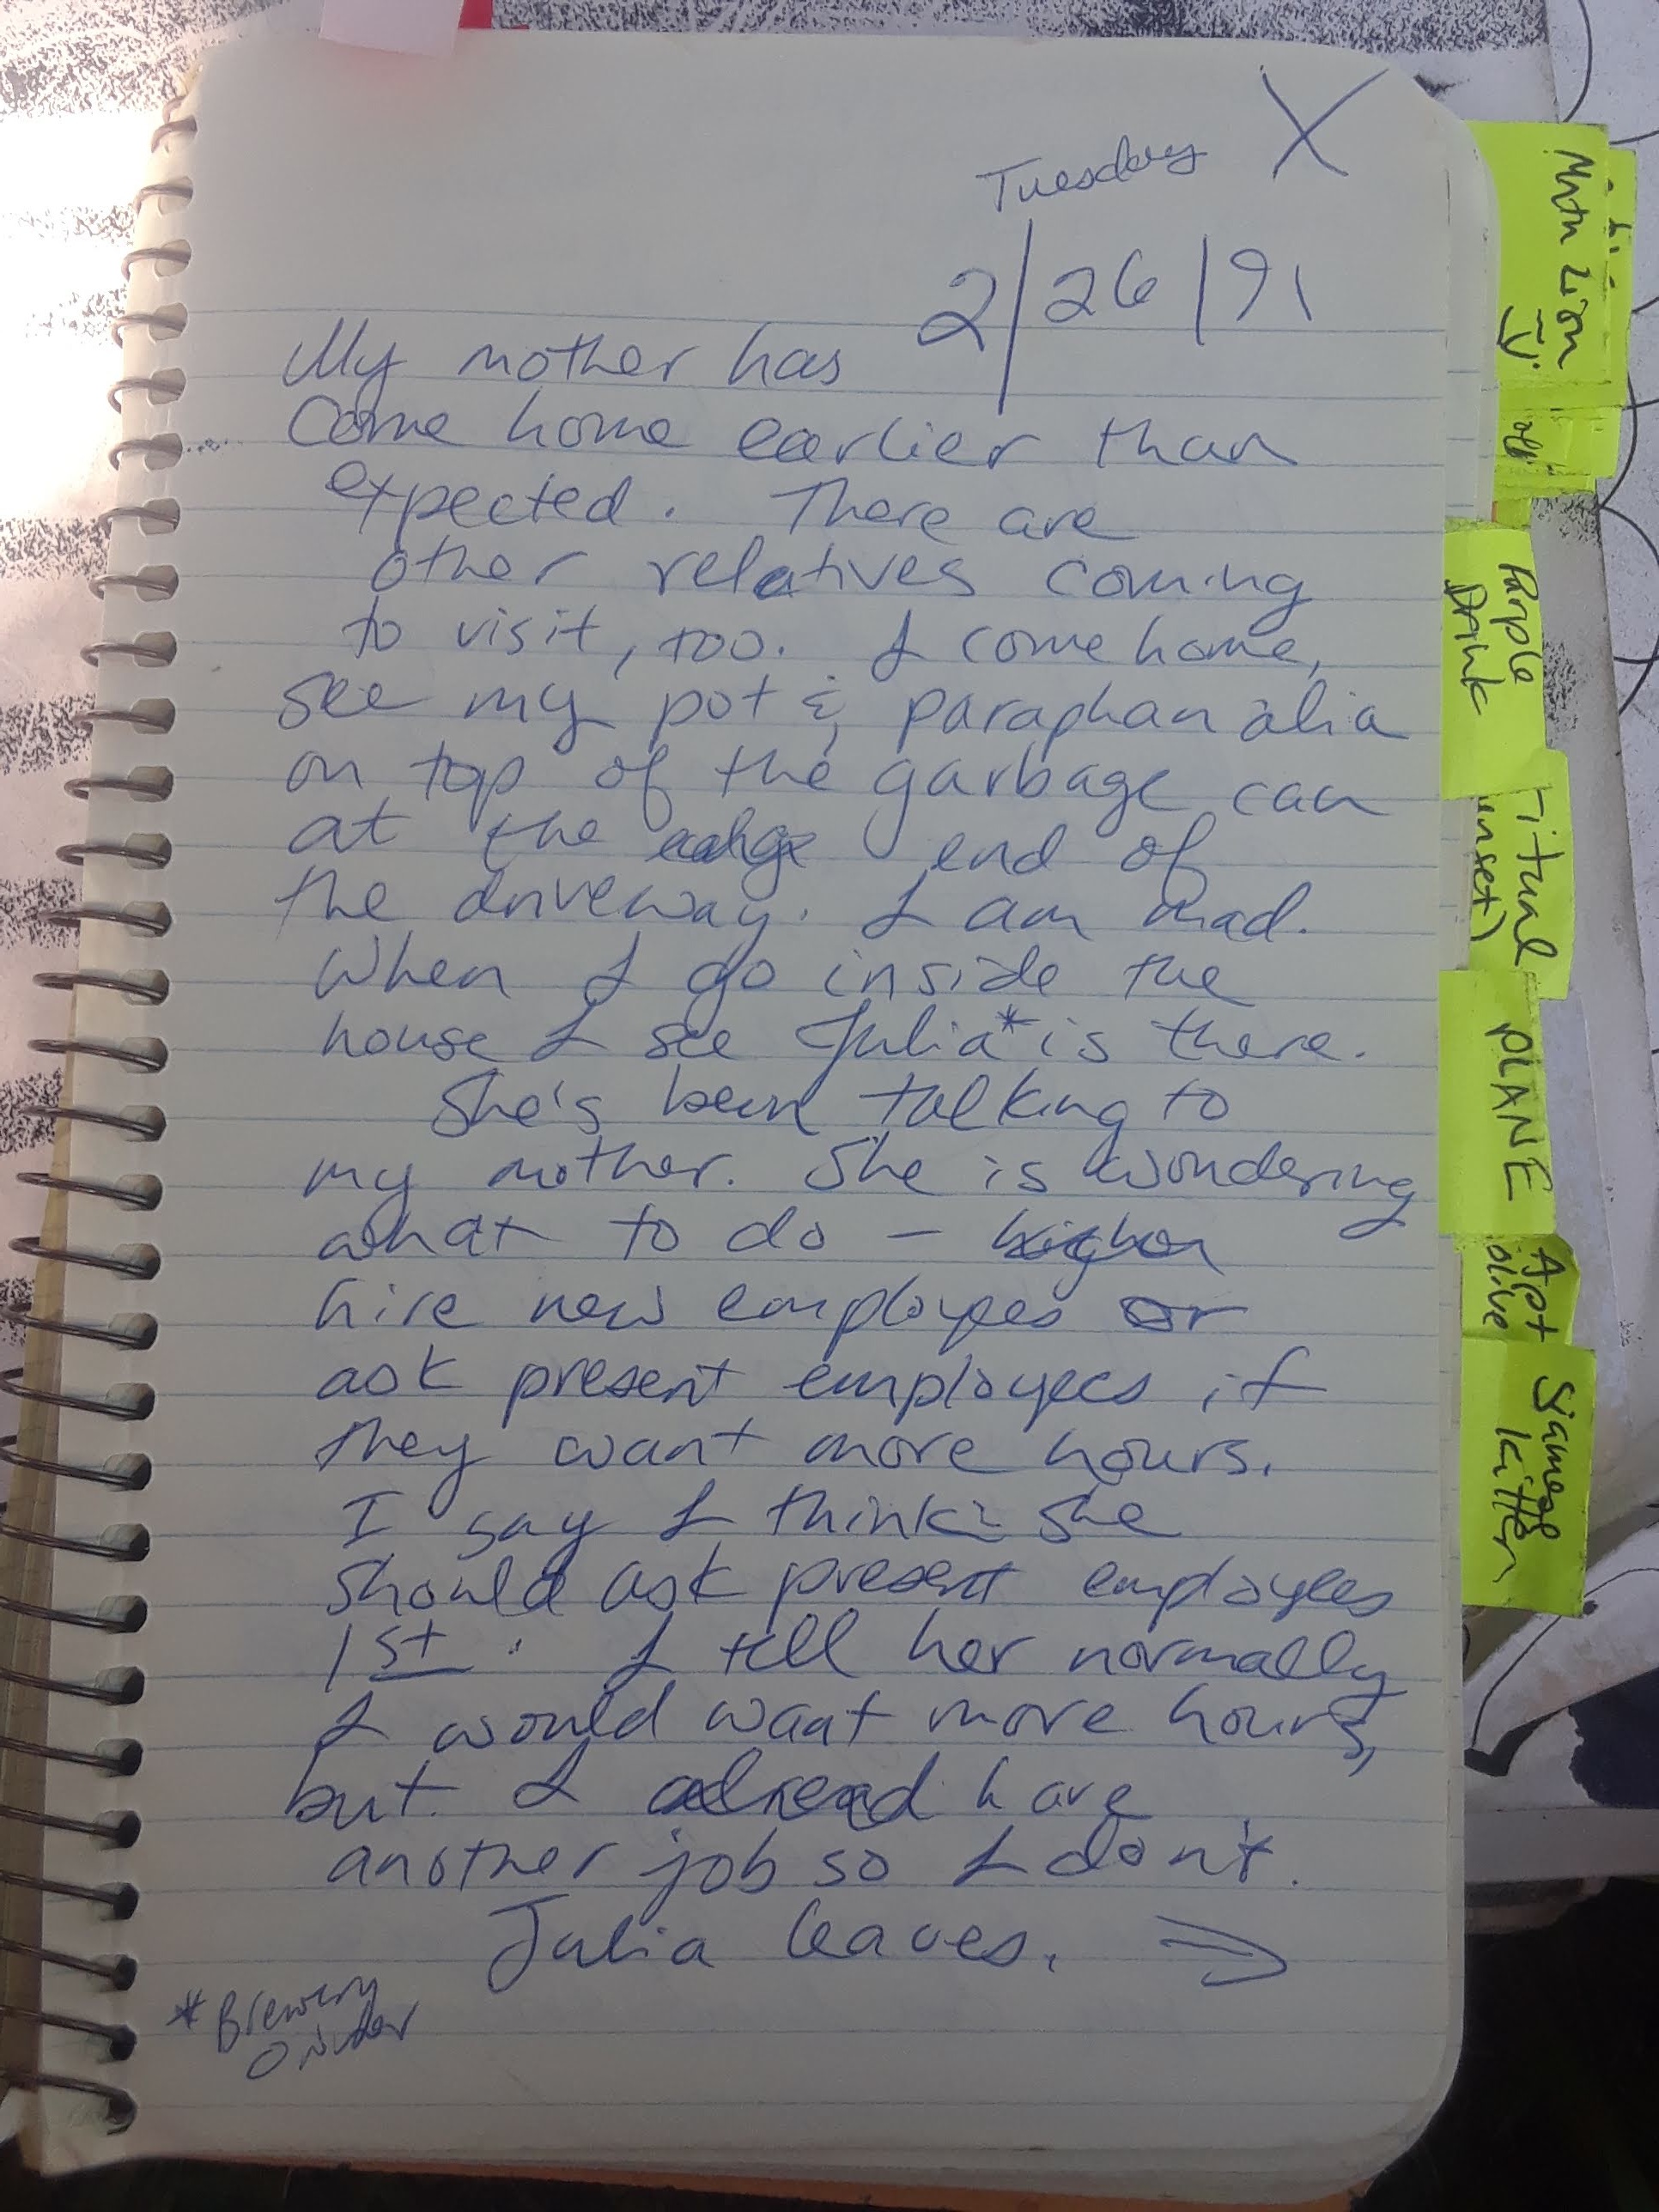 Tuesday X
2/26/91
My mother has
come home earlier than
expected. There are
other relatives coming
to visit, too. I come home,
see my pot & paraphanalia
on top of the garbage can
at the end of
the driveway. I am mad.
When I go inside the
house I see Julia* is there.
She's been talking to
my mother. She is wondering
what to do –
hire new employees or
ask present employees if
they want more hours.
I say I think she
should ask present employees
1st. I tell her normally
I would want more hours,
but I alread have
another job so I don't.
Julia leaves. →
* Brewery
owner
Mtn Lion
IV
Purple
Drink
ritual
unset)
PLANE
Apt
olive
Siamese
kitten